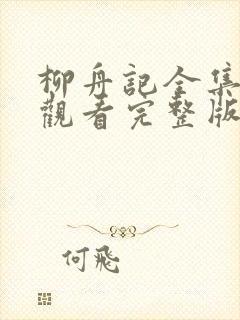 柳舟記全集
觀看完整版
何飛